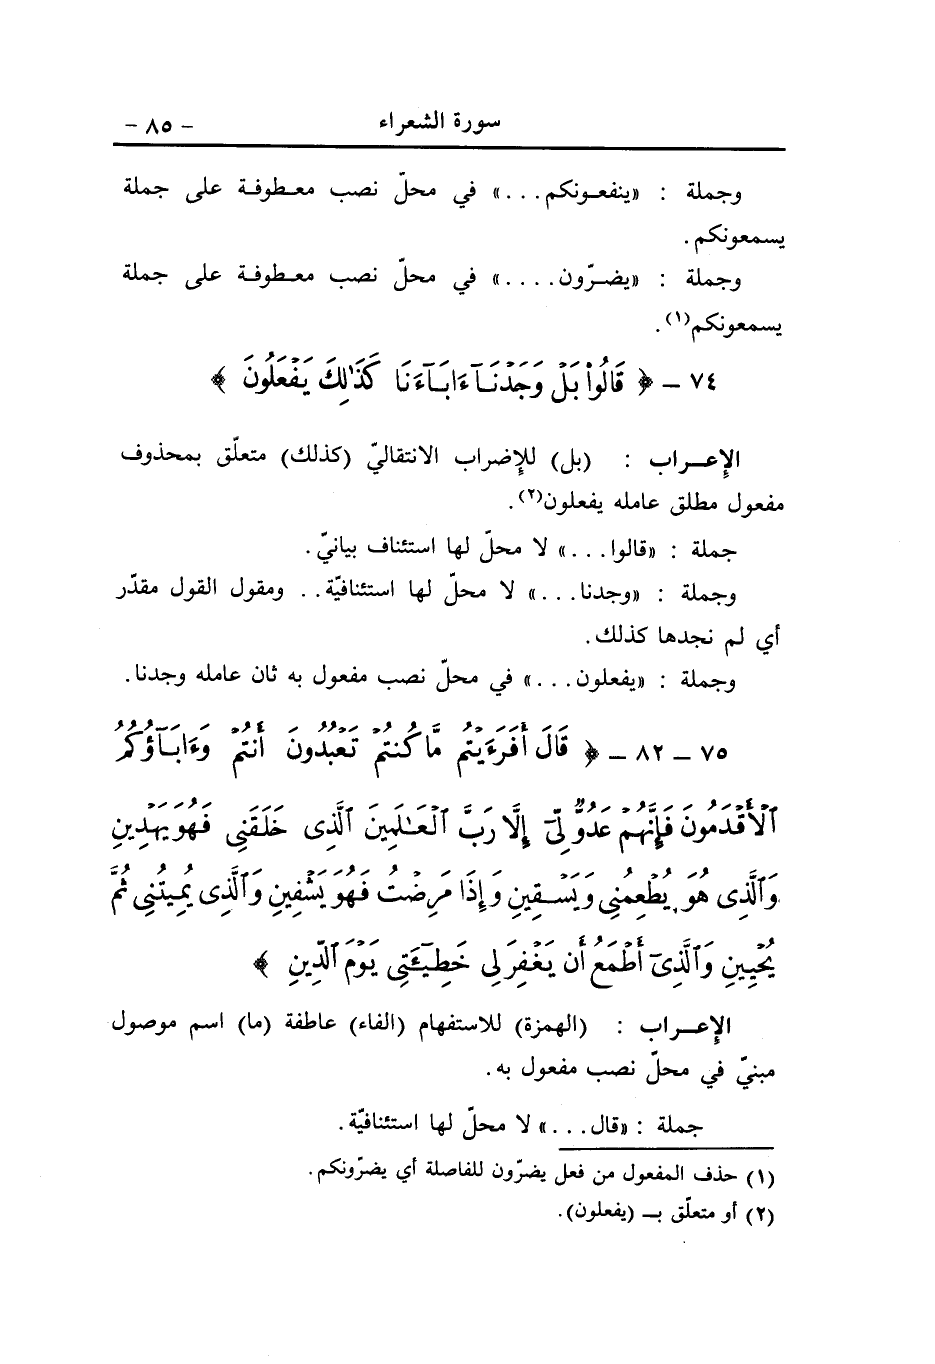 سورة الشعراء - ٨٥ -
وجملة : «ينفعـونكم...» في محلّ نصب معـطوفـة على جملة
يسمعونكم.
وجملة : «يضـرّون....» في محلّ نصب معـطوفـة على جملة
يسمعونكم(١).
٧٤ - ﴿ قَالُواْ بَلۡ وَجَدۡنَآ ءَابَآءَنَا كَذَٰلِكَ يَفۡعَلُونَ ﴾
الإعـراب : (بل) للإضراب الانتقاليّ (كذلك) متعلّق بمحذوف
مفعول مطلق عامله يفعلون(٢).
جملة : «قالوا...» لا محلّ لها استئناف بيانيّ.
وجملة : «وجدنا...» لا محلّ لها استئنافيّة.. ومقول القول مقدّر
أي لم نجدها كذلك.
وجملة : «يفعلون...» في محلّ نصب مفعول به ثان عامله وجدنا.
٧٥ - ٨٢ - ﴿ قَالَ أَفَرَءَيۡتُم مَّا كُنتُمۡ تَعۡبُدُونَ أَنتُمۡ وَءَابَآؤُكُمُ
ٱلۡأَقۡدَمُونَ فَإِنَّهُمۡ عَدُوّٞ لِّيٓ إِلَّا رَبَّ ٱلۡعَٰلَمِينَ ٱلَّذِي خَلَقَنِي فَهُوَ يَهۡدِينِ
وَٱلَّذِي هُوَ يُطۡعِمُنِي وَيَسۡقِينِ وَإِذَا مَرِضۡتُ فَهُوَ يَشۡفِينِ وَٱلَّذِي يُمِيتُنِي ثُمَّ
يُحۡيِينِ وَٱلَّذِيٓ أَطۡمَعُ أَن يَغۡفِرَ لِي خَطِيٓـَٔتِي يَوۡمَ ٱلدِّينِ ﴾
الإعـراب : (الهمزة) للاستفهام (الفاء) عاطفة (ما) اسم موصول
مبنيّ في محلّ نصب مفعول به.
جملة : «قال...» لا محلّ لها استئنافيّة.
(١) حذف المفعول من فعل يضرّون للفاصلة أي يضرّونكم.
(٢) أو متعلّق بـ (يفعلون).